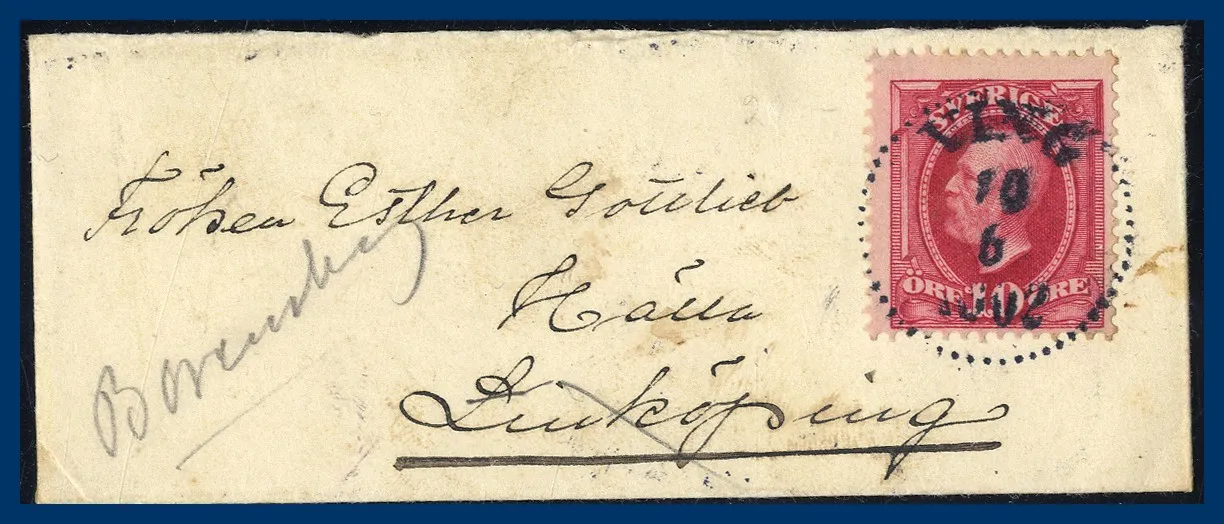 SVERIGE
10
6
1902
ÖRE 10 ÖRE
Fröken Esther Gottlieb
Hälla
Linköping
Borensberg